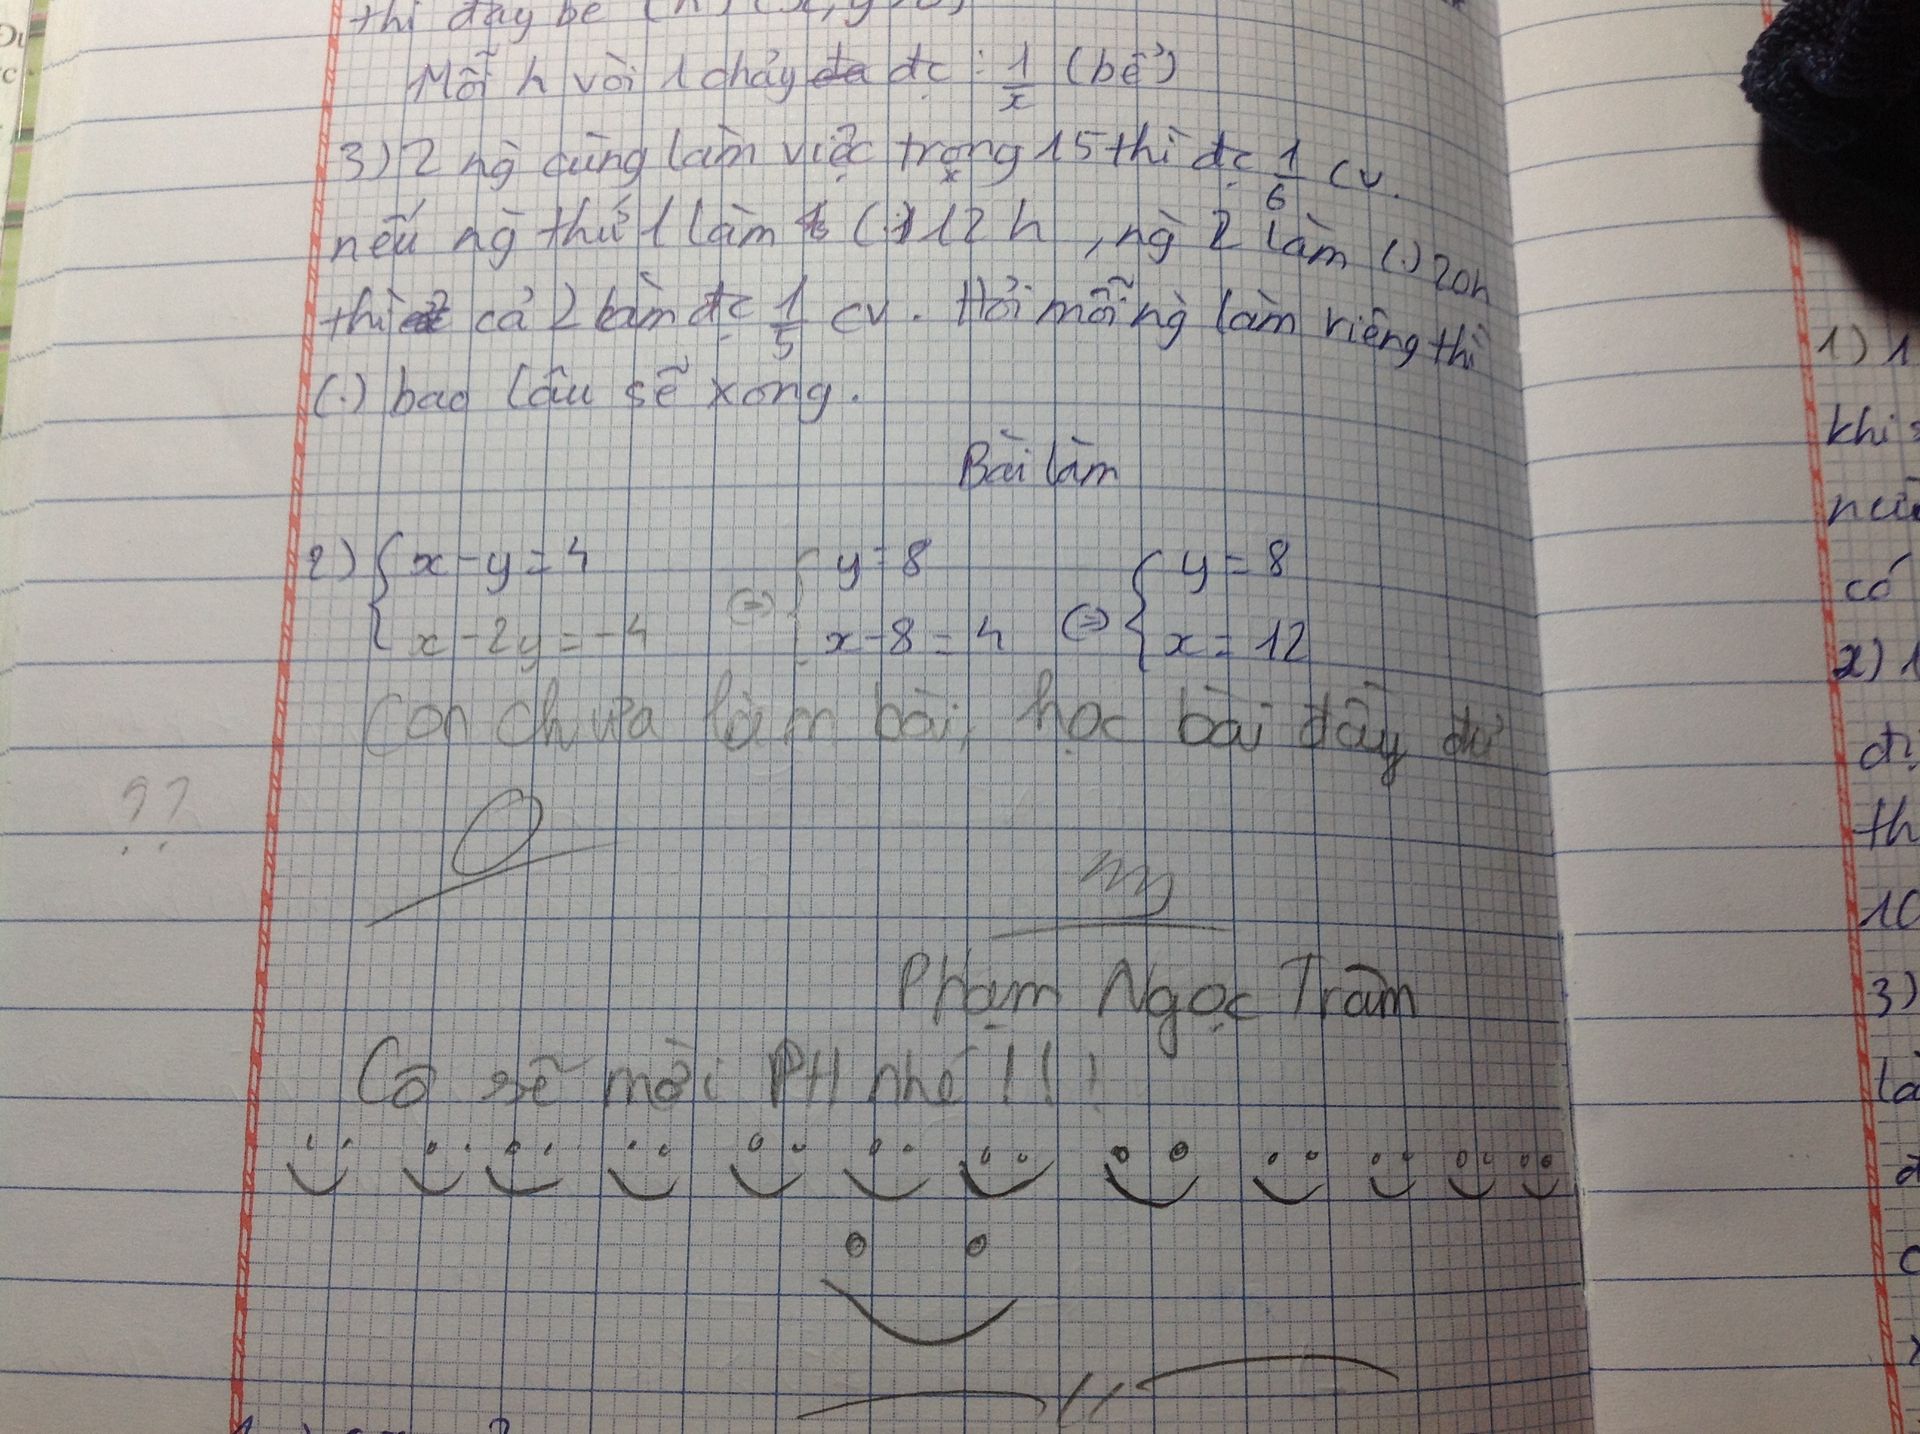 thì đầy bể (h) (x, y > 0)
Mỗi h vòi 1 chảy đc : 1/x (bể)
3) 2 ng cùng làm việc trong 15 thì đc 1/6 cv.
nếu ng thứ 1 làm (.) 12 h, ng 2 làm (.) 20h
thì cả 2 làm đc 1/5 cv. Hỏi mỗi ng làm riêng thì
(.) bao lâu sẽ xong.
Bài làm
2) { x - y = 4 ; x - 2y = -4 ⇔ { y = 8 ; x - 8 = 4 ⇔ { y = 8 ; x = 12
Con chưa làm bài, học bài đầy đủ
??
Phạm Ngọc Trâm
Cô sẽ mời PH nhé!!!
1) 1
khi
nếu
có
2) 1
th
10
3)
là